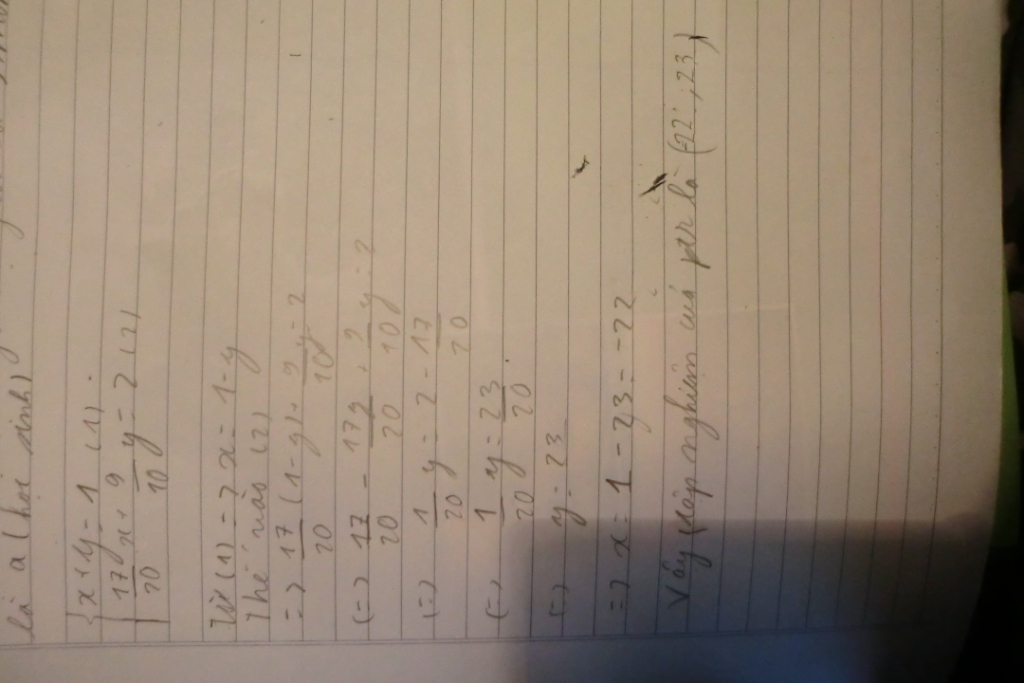 là a (học sinh)
{ x + y = 1 (1)
17/20 x + 9/10 y = 2 (2)
Từ (1) => x = 1 - y
Thế vào (2)
=> 17/20 (1 - y) + 9/10 y = 2
(=) 17/20 - 17y/20 + 9/10 y = 2
(=) 1/20 y = 2 - 17/20
(=) 1/20 y = 23/20
(=) y = 23
=> x = 1 - 23 = -22
Vậy nghiệm của ptr là (-22 ; 23)